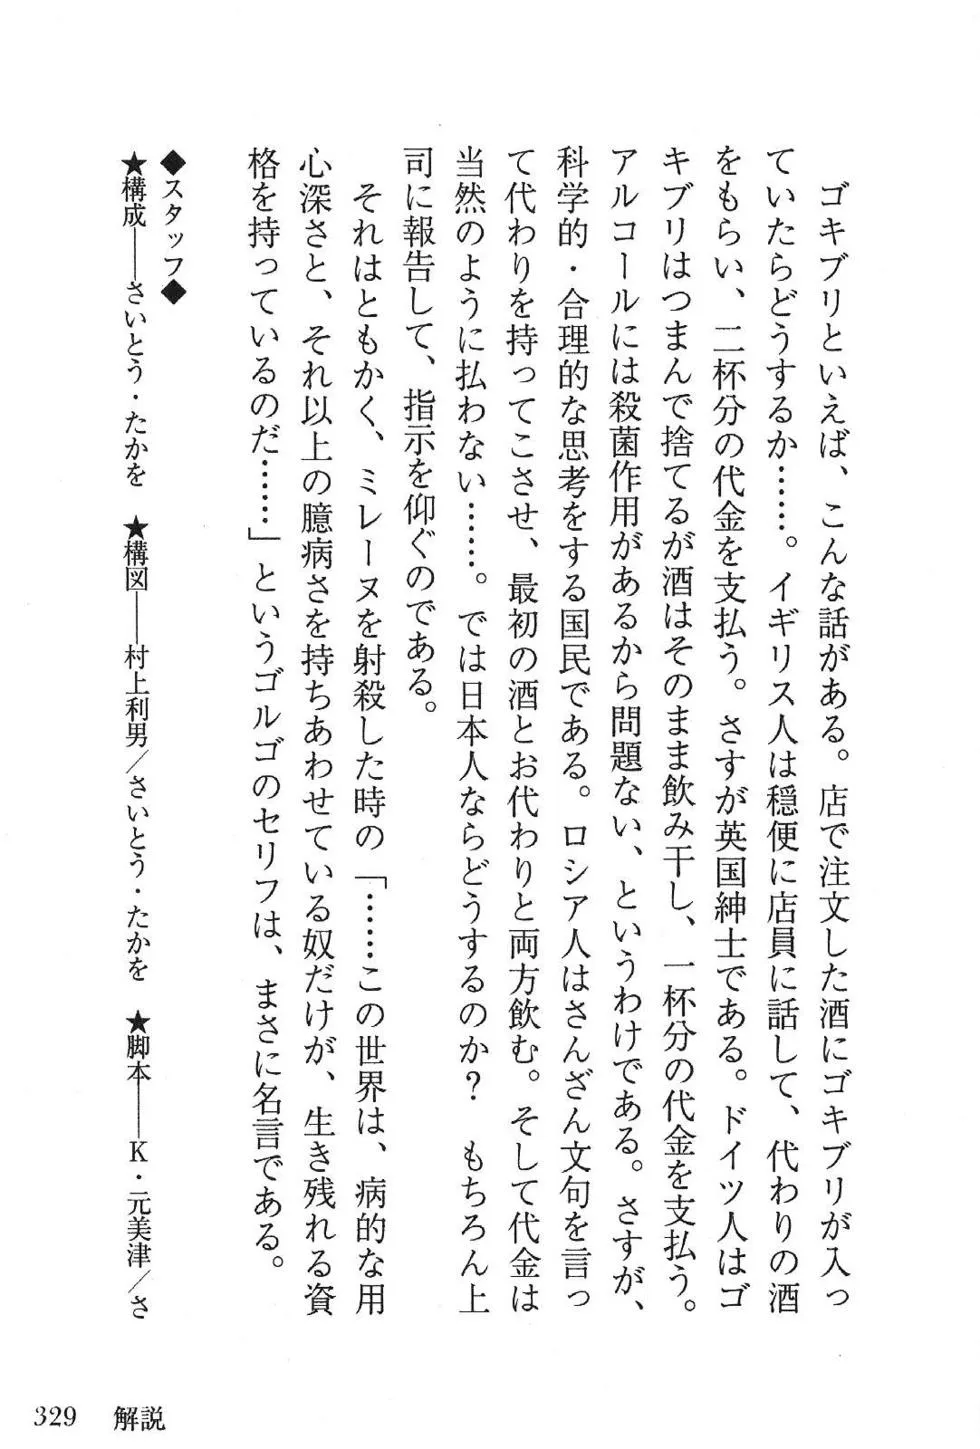 ゴキブリといえば、こんな話がある。店で注文した酒にゴキブリが入っ
ていたらどうするか……。イギリス人は穏便に店員に話して、代わりの酒
をもらい、二杯分の代金を支払う。さすが英国紳士である。ドイツ人はゴ
キブリはつまんで捨てるが酒はそのまま飲み干し、一杯分の代金を支払う。
アルコールには殺菌作用があるから問題ない、というわけである。さすが、
科学的・合理的な思考をする国民である。ロシア人はさんざん文句を言っ
て代わりを持ってこさせ、最初の酒とお代わりと両方飲む。そして代金は
当然のように払わない……。では日本人ならどうするのか？　もちろん上
司に報告して、指示を仰ぐのである。
それはともかく、ミレーヌを射殺した時の「……この世界は、病的な用
心深さと、それ以上の臆病さを持ちあわせている奴だけが、生き残れる資
格を持っているのだ……」というゴルゴのセリフは、まさに名言である。
◆スタッフ◆
★構成――さいとう・たかを　★構図――村上利男／さいとう・たかを　★脚本――K・元美津／さ
329　解説